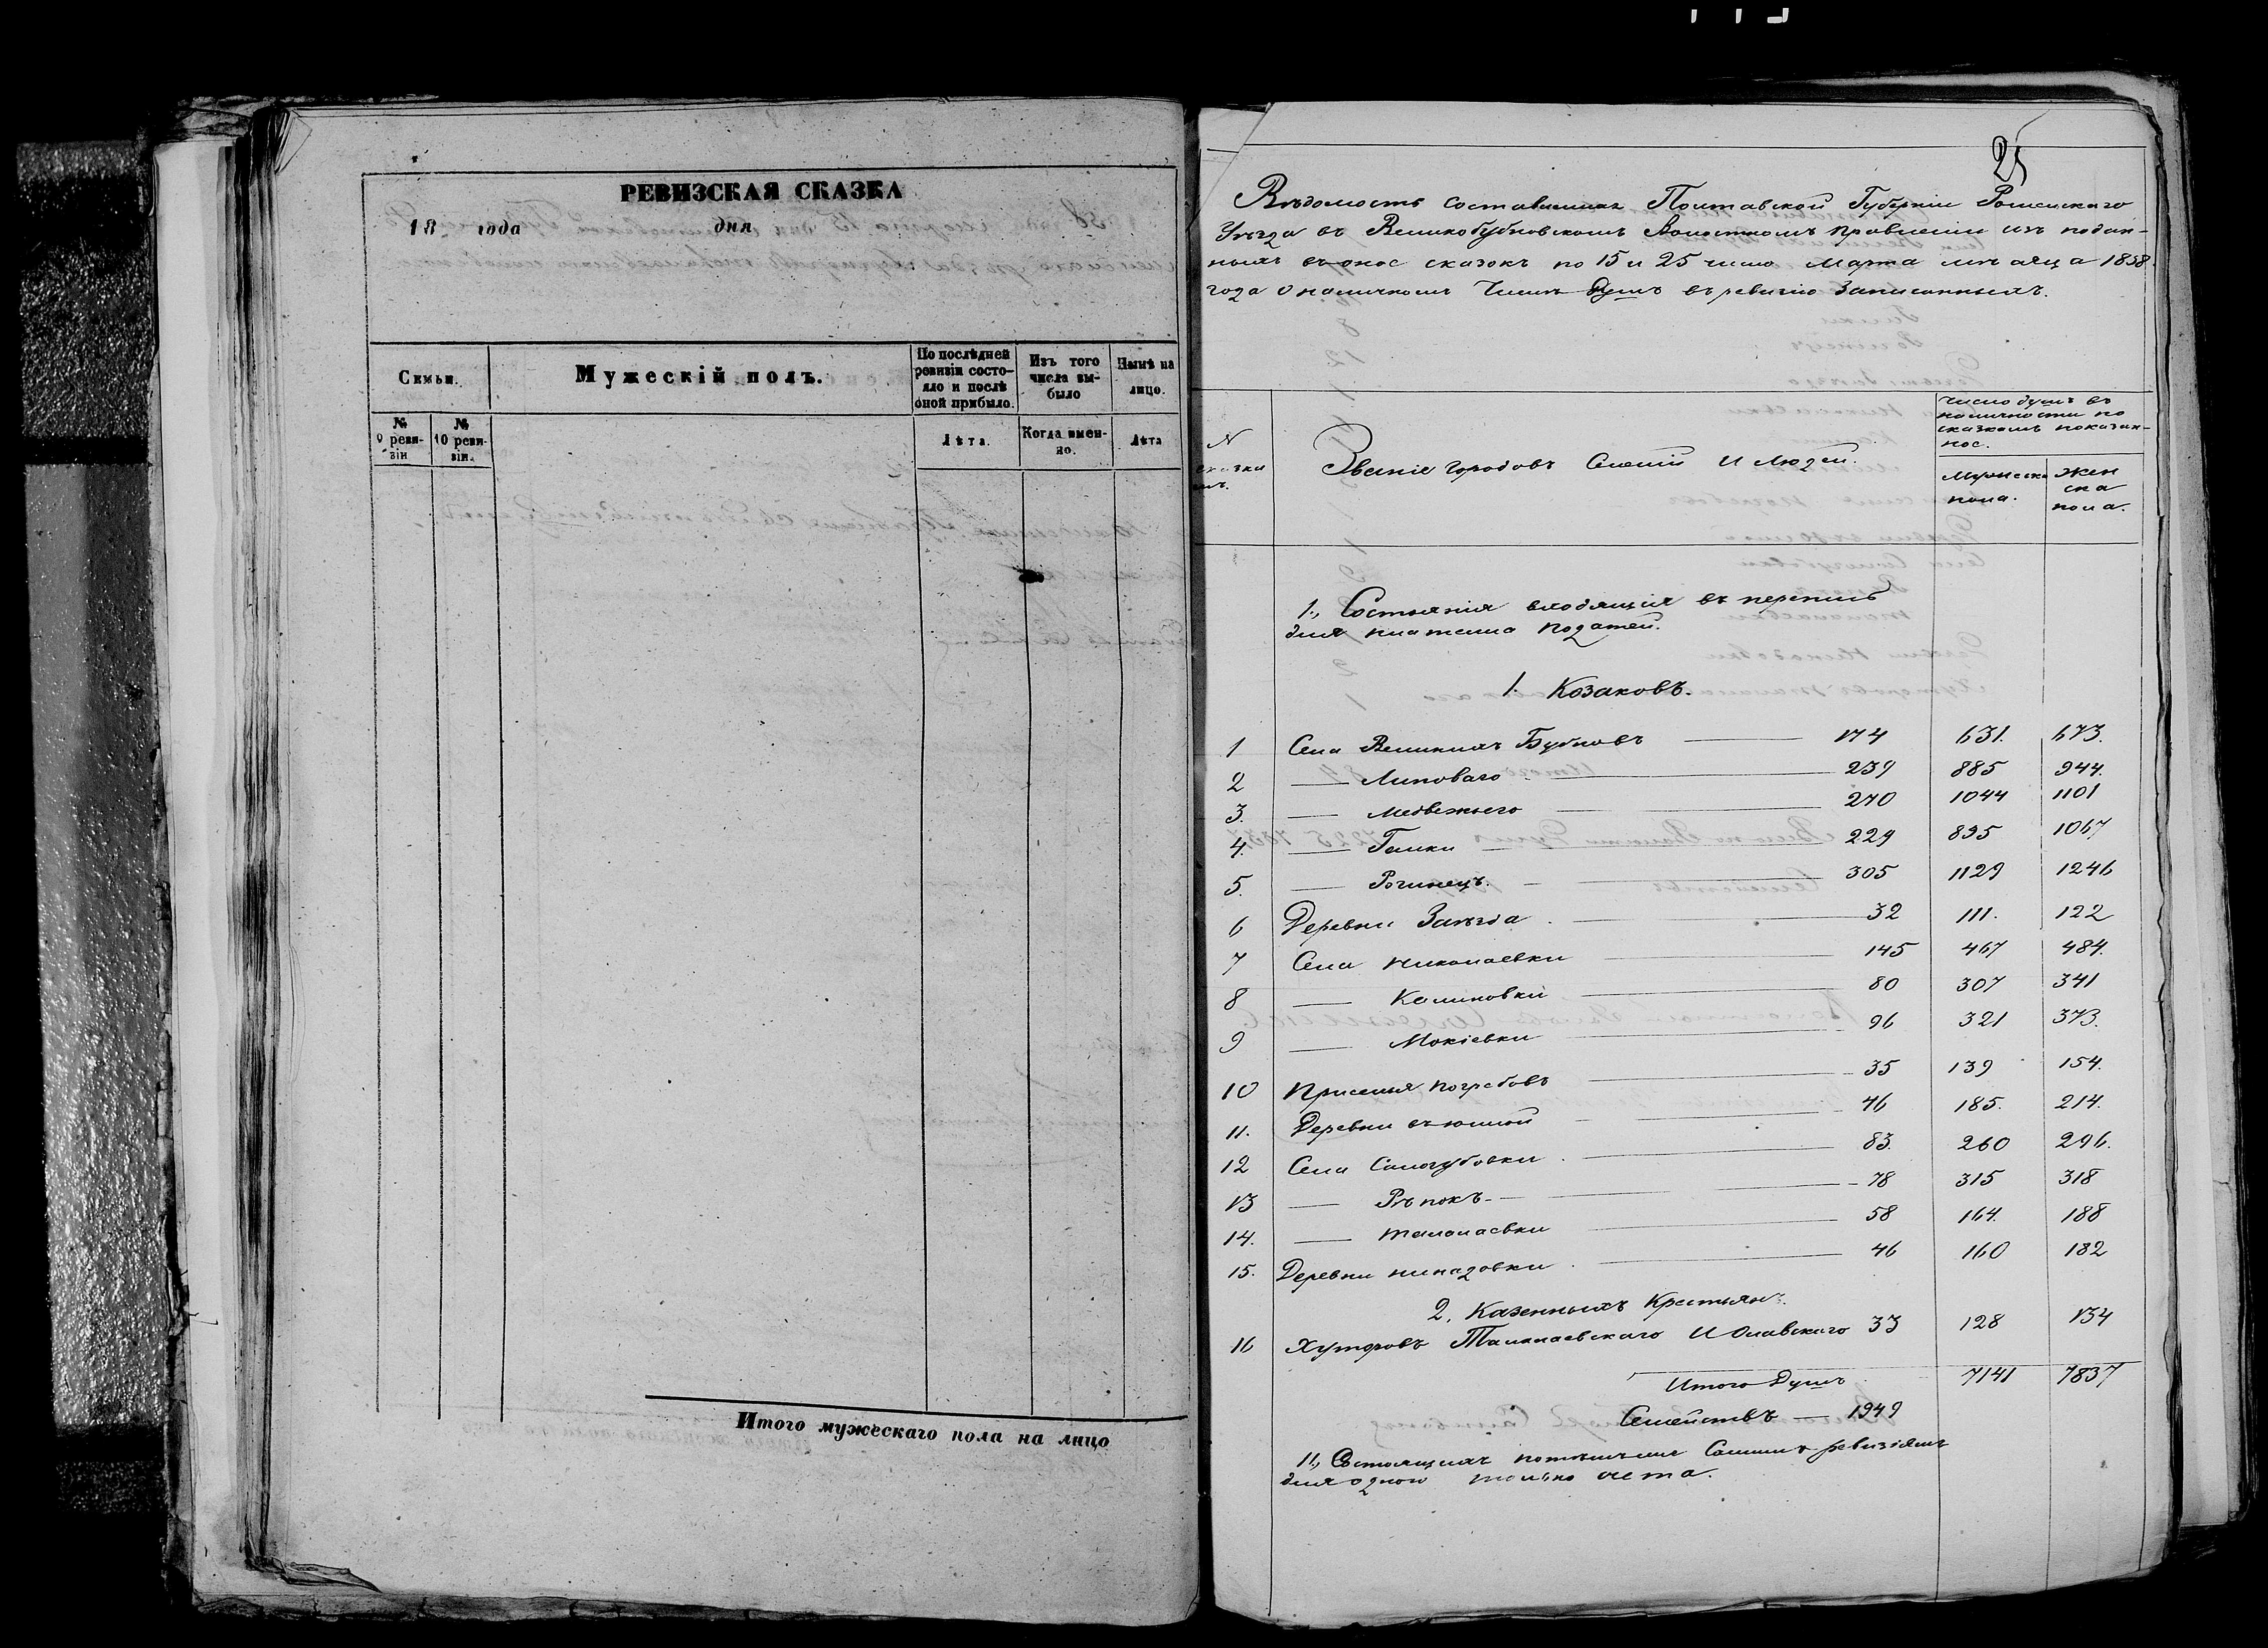 РЕВИЗСКАЯ СКАЗКА
18 года дня
Семьи.
Мужескій полъ.
По послѣдней ревизіи состо-
яло и послѣ
оной прибыло.
Изъ того
числа вы-
было
Нынѣ на
лицо.
№ 9 реви-
зіи
№ 10 реви-
зіи.
Лѣта.
Когда имен-
но.
Лѣта
Итого мужескаго пола на лицо
25
Вѣдомость составленная Полтавской Губерніи Роменскаго
Уѣзда въ Великобубновскомъ Волостномъ Правленіи изъ подан-
ныхъ въ оное сказокъ по 15 и 25 число Марта мѣсяца 1858
года о наличномъ Числѣ Душъ въ ревизію Записанныхъ.
N
сказки
Званіе городовъ Селеній И Людей.
Число душъ въ
наличности по
сказкамъ показан-
ное.
Мужеска
пола.
Жен
ска
пола.
1., Состоянія входящія въ перепись
для платежа податей.
1. Козаковъ.
1 Села Великихъ Бубновъ 174 631. 673.
2 — Липоваго 239 885 944.
3. — Медвежьего 270 1044 1101
4. — Галки 229 895 1067
5. — Рогинецъ. 305 1129 1246
6 Деревни Залѣза 32 111. 122
7 Села Николаевки 145 467 484.
8 — Калиновки 80 307 341
9 — Мокіевки 96 321 373.
10 Приселья Погребовъ 35 139 154.
11. Деревни 46 185. 214.
12 Села Самогубовки 83. 260 296.
13 — Рѣпокъ 78 315 318
14. — Талалаевки 58 164. 188
15. Деревни Никадовки 46 160 182
2. Казенныхъ Крестьянъ.
16 Хуторовъ Талалаевскаго И Олавскаго 33 128 134
Итого Душъ 7141 7837
Семействъ — 1949
11., Состоящихъ ревизіямъ
для одного только счета.